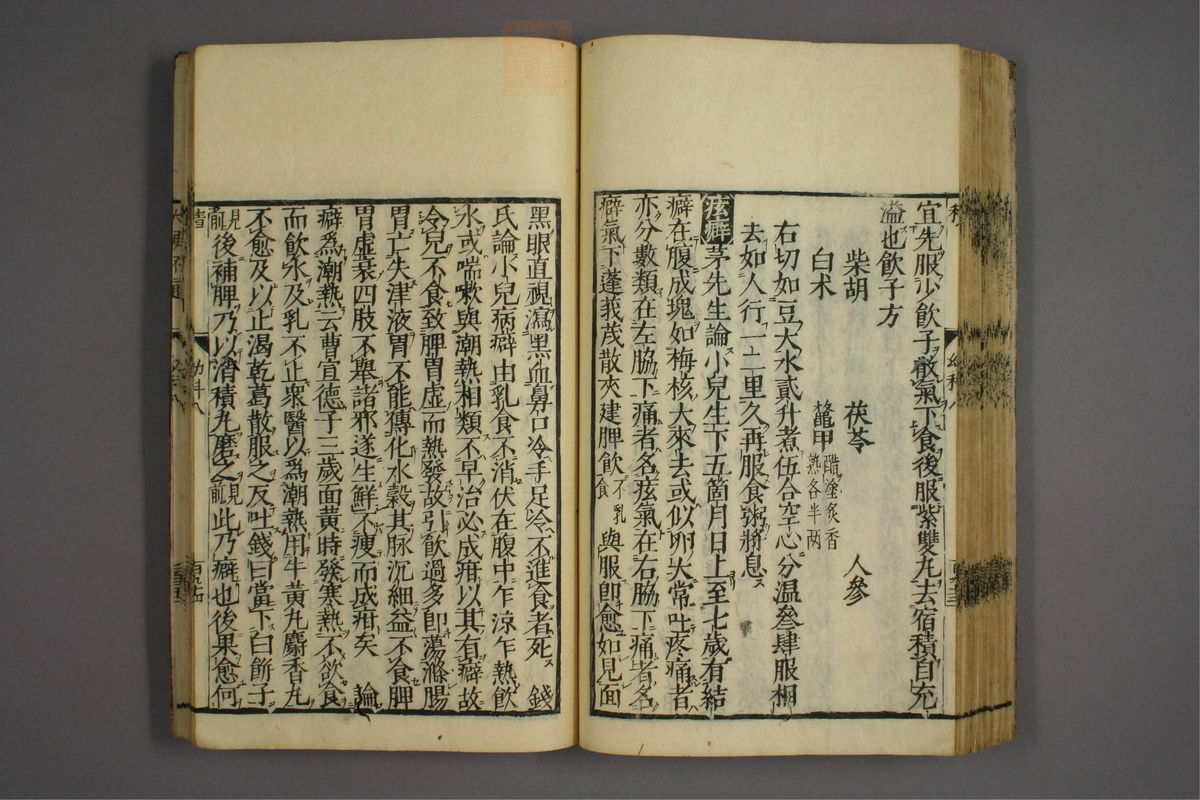 宜先服少飲子散氣下食後服紫雙丸去宿積自充
溢也飲子方
柴胡 茯苓 人參
白朮 鼈甲醋塗炙香熟各半两
右切如豆大水貳升煮伍合空心分温叄肆服相
去如人行一二里久再服食粥將息
痃癖 茅先生論小兒生下五箇月日上至七歲有結
癖在腹成塊如梅核大來去或似卵大常吐疼痛者
亦分數類在左脇下痛者名痃氣在右脇下痛者名
癖氣下蓬莪茂散夾建脾飲不乳食與服即愈如見面
黑眼直視瀉黑血鼻口冷手足冷不進食者死 錢
氏論小兒病癖由乳食不消伏在腹中乍凉乍熱飲
水或喘嗽與潮熱相類不早治必成疳以其有癖故
冷兒不食致脾胃虚而熱發故引飲過多即蕩滌腸
胃亡失津液胃不能傳化水穀其脉沉細益不食脾
胃虚衰四肢不舉諸邪遂生鮮不瘦而成疳矣 論
癖爲潮熱云曹宣德子三歲面黃時發寒熱不欲食
而飲水及乳不止衆醫以爲潮熱用牛黃丸麝香丸
不愈及以止渴乾葛散服之反吐錢曰當下白餅子
見前後補脾乃以消積丸磨之見前此乃癖也後果愈何
幼科八